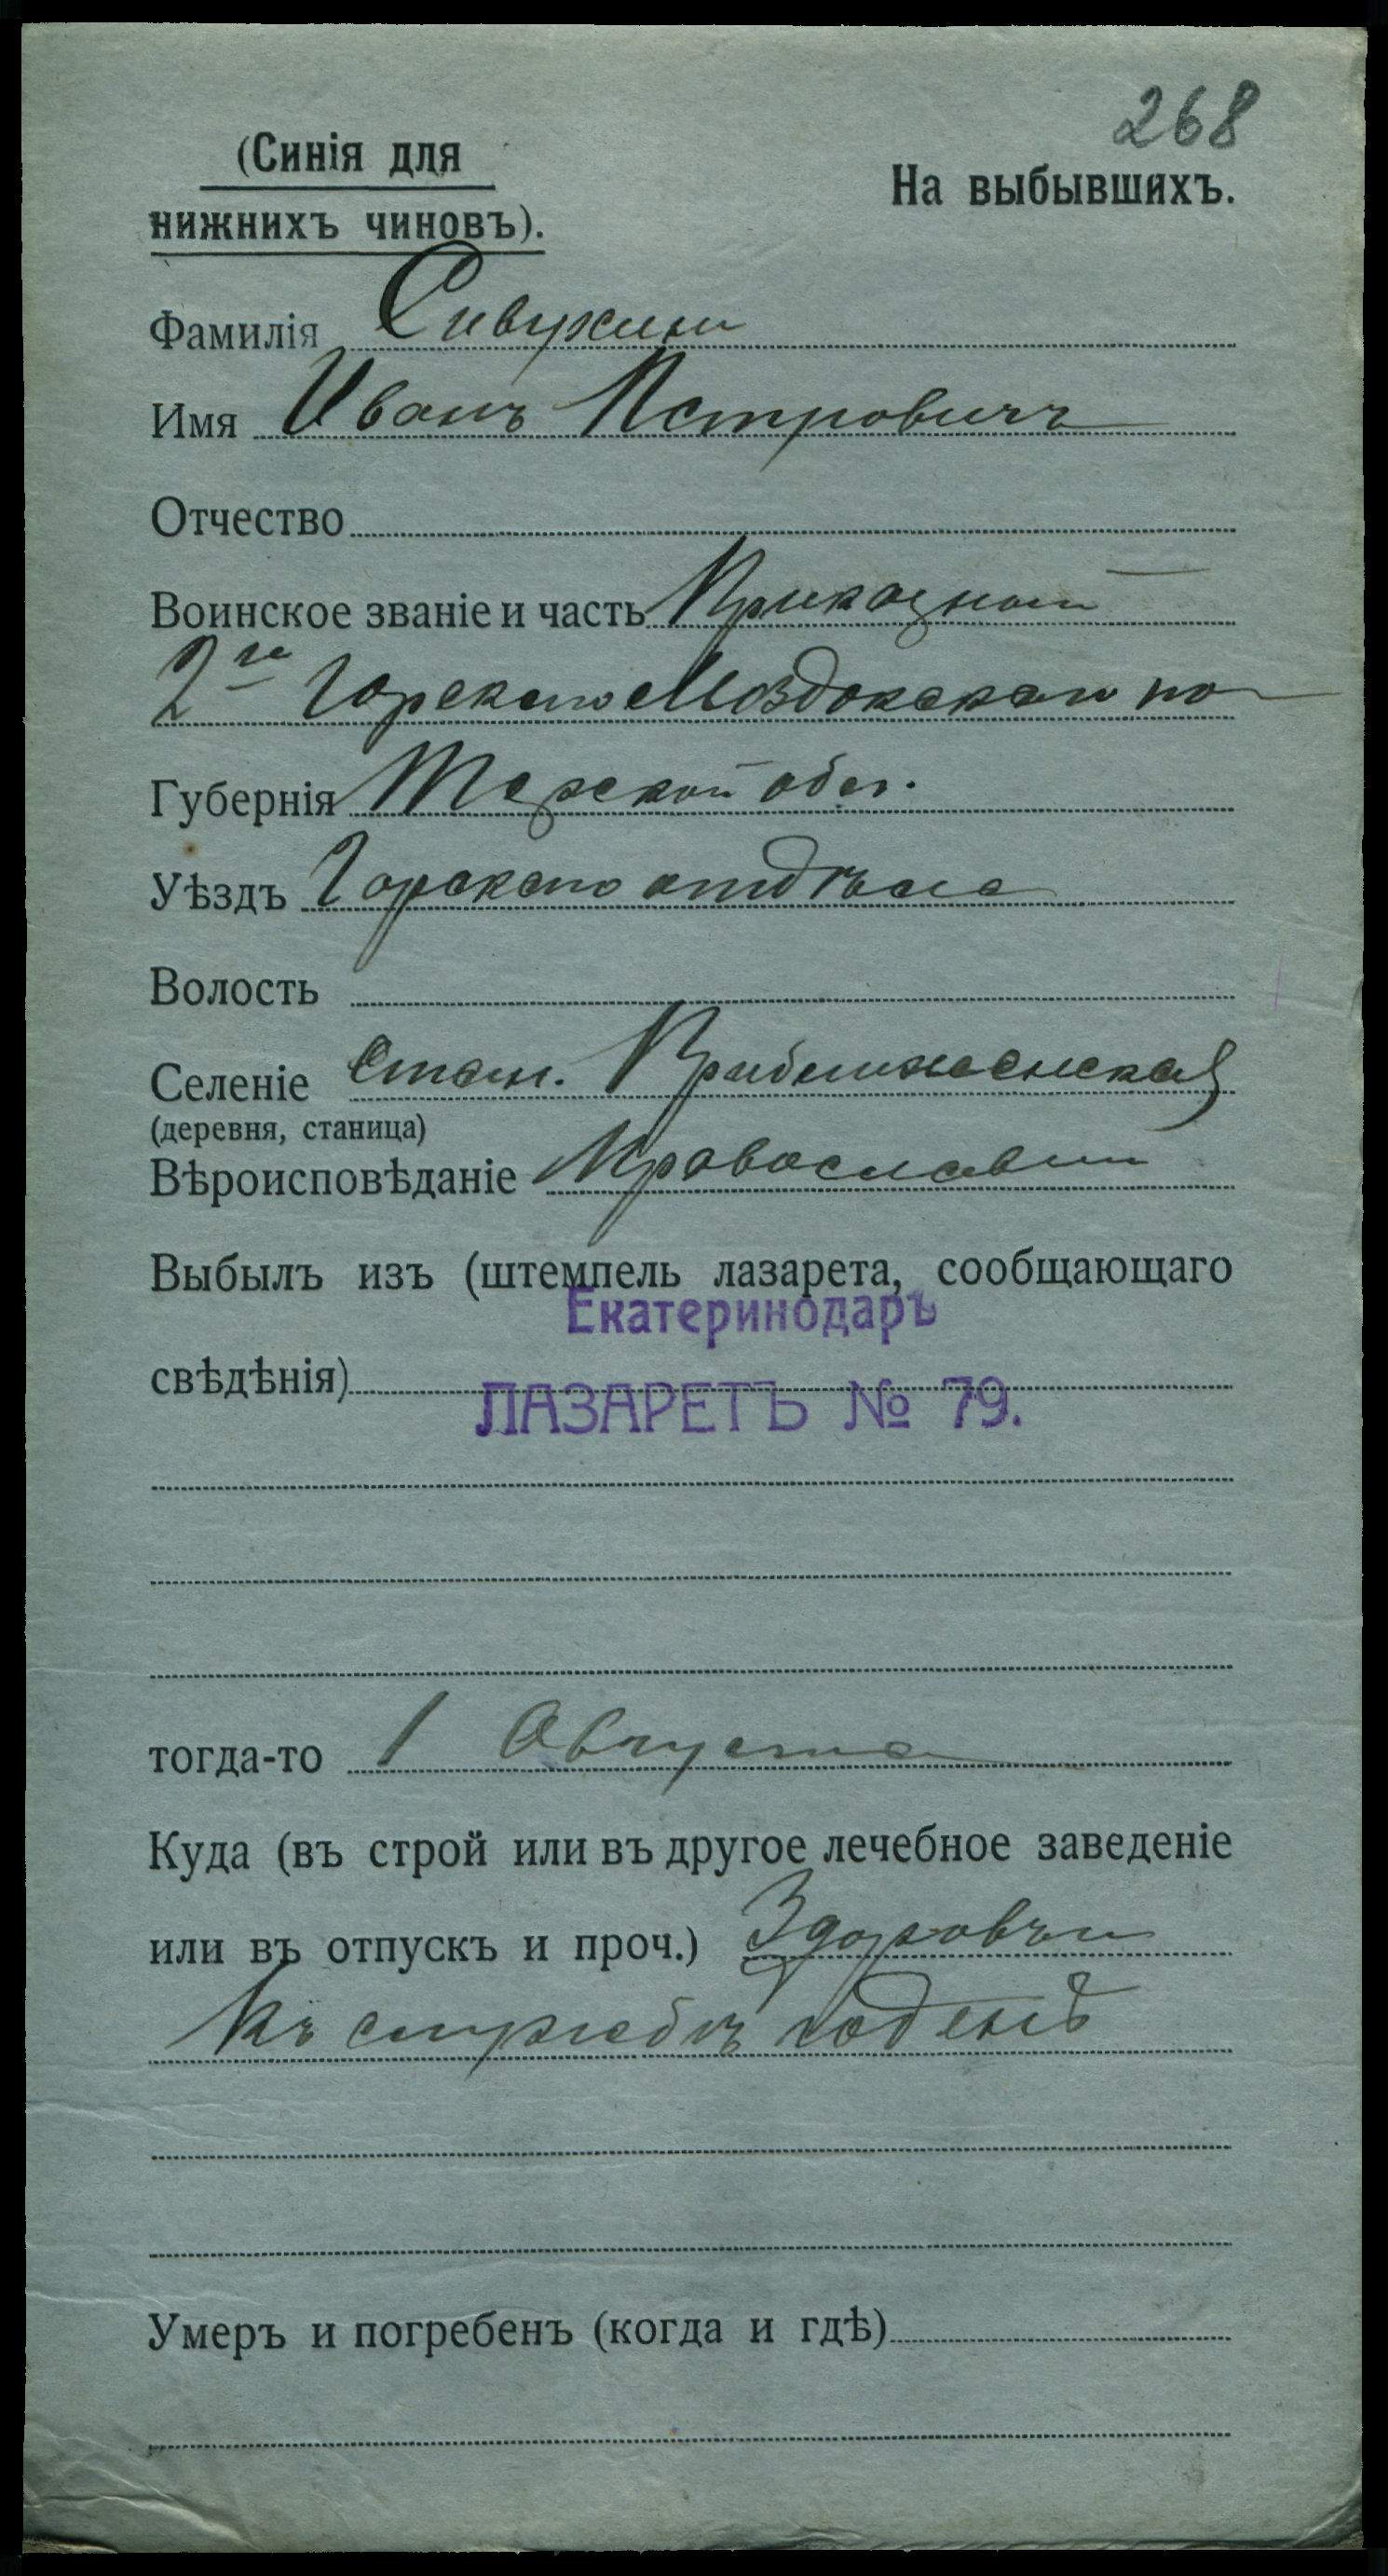 268
(Синія для
нижнихъ чиновъ).
На выбывшихъ.
Фамилія Сивужин
Имя Иванъ Петровичъ
Отчество
Воинское званіе и часть Приказной
2го Горскаго Моздокскаго по
Губернія Терской обл.
Уѣздъ Горскаго отдѣла
Волость
Селеніе Стан. Приближненская
(деревня, станица)
Вѣроисповѣданіе Православн
Выбылъ изъ (штемпель лазарета, сообщающаго
Екатеринодаръ
свѣдѣнія)
ЛАЗАРЕТЪ № 79.
тогда-то 1 Августа
Куда (въ строй или въ другое лечебное заведеніе
или въ отпускъ и проч.) Здоровъ и
къ службѣ годенъ
Умеръ и погребенъ (когда и гдѣ)